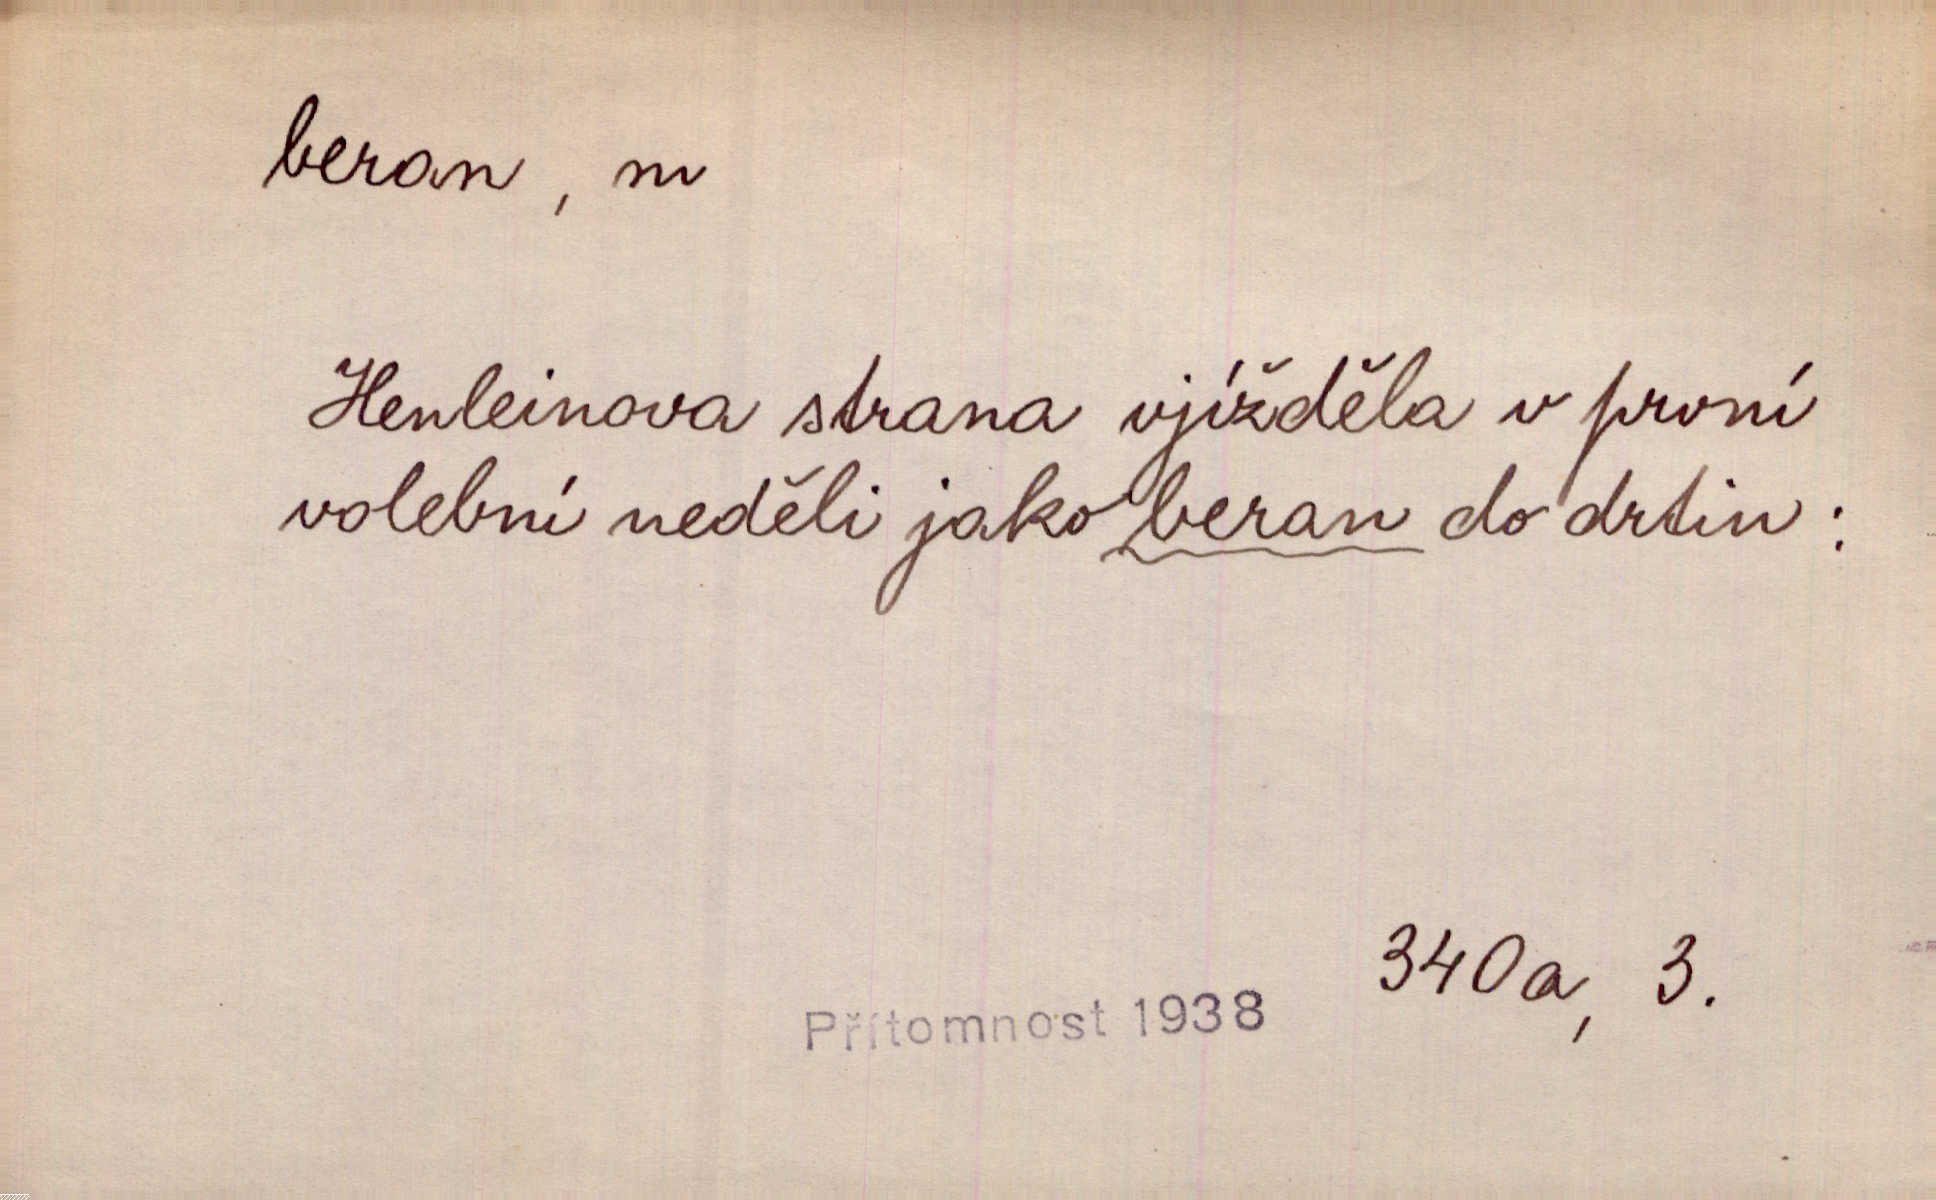 beran, m
Henleinova strana vjížděla v první
volební neděli jako beran do drtin:
340a, 3.
Přítomnost 1938